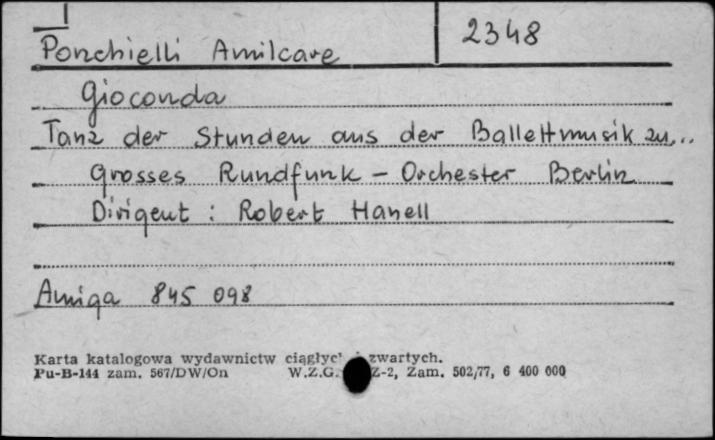 2348
Ponchielli Amilcare
Gioconda
Tanz der Stunden aus der Ballettmusik zu...
Grosses Rundfunk - Orchester Berlin
Dirigent : Robert Hanell
Amiga 845 098
Karta katalogowa wydawnictw zwartych.
Pu-B-144 zam. 567/DW/On W.Z.G. Z-2, Zam. 502/77, 6 400 000